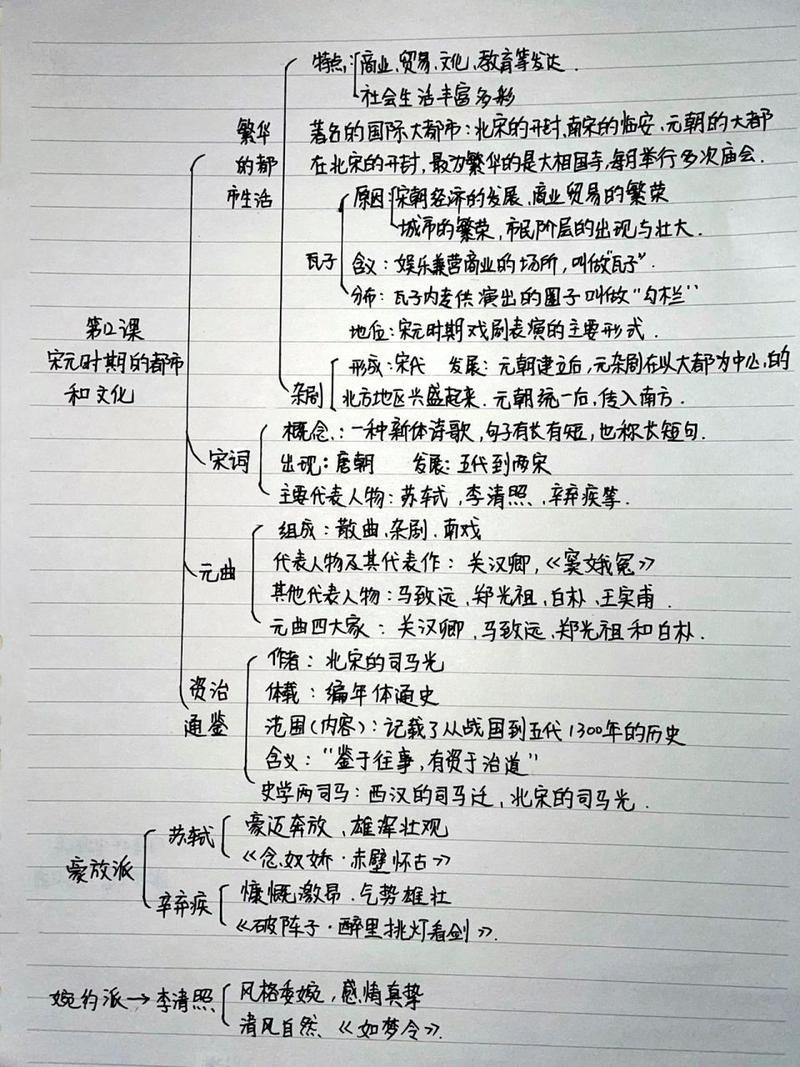 特点:商业、贸易、文化、教育等发达.
社会生活丰富多彩
繁华的都市生活
著名的国际大都市:北宋的开封、南宋的临安、元朝的大都
在北宋的开封,最为繁华的是大相国寺,每月举行多次庙会.
原因:宋朝经济的发展、商业贸易的繁荣
城市的繁荣,市民阶层的出现与壮大.
瓦子
含义:娱乐兼营商业的场所,叫做"瓦子".
分布:瓦子内专供演出的圈子叫做"勾栏"
第12课
宋元时期的都市
和文化
地位:宋元时期戏剧表演的主要形式.
杂剧
形成:宋代 发展:元朝建立后,元杂剧在以大都为中心,的
北方地区兴盛起来.元朝统一后,传入南方.
宋词
概念:一种新体诗歌,句子有长有短,也称长短句.
出现:唐朝 发展:五代到两宋
主要代表人物:苏轼,李清照、辛弃疾等.
元曲
组成:散曲、杂剧、南戏
代表人物及其代表作:关汉卿,《窦娥冤》
其他代表人物:马致远、郑光祖、白朴、王实甫.
元曲四大家:关汉卿、马致远、郑光祖和白朴.
资治
通鉴
作者:北宋的司马光
体裁:编年体通史
范围(内容):记载了从战国到五代1300年的历史
含义:"鉴于往事,有资于治道"
史学两司马:西汉的司马迁,北宋的司马光.
豪放派
苏轼
豪迈奔放、雄浑壮观
《念奴娇·赤壁怀古》
辛弃疾
慷慨激昂、气势雄壮
《破阵子·醉里挑灯看剑》.
婉约派→李清照
风格委婉,感情真挚
清风自然、《如梦令》.